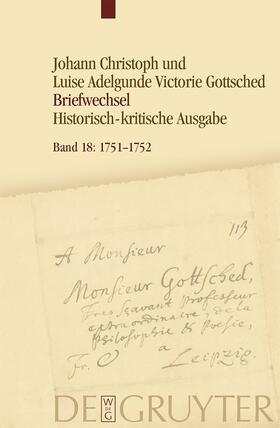 Johann Christoph und
Luise Adelgunde Victorie Gottsched
Briefwechsel
Historisch-kritische Ausgabe
Band 18: 1751–1752
113
A Monsieur
Monsieur Gottsched,
Tres Savant Professeur
extraordinaire, de la
Philosophie & Poesie,
Fr. à Leipzig.
DE GRUYTER
W
DE
G